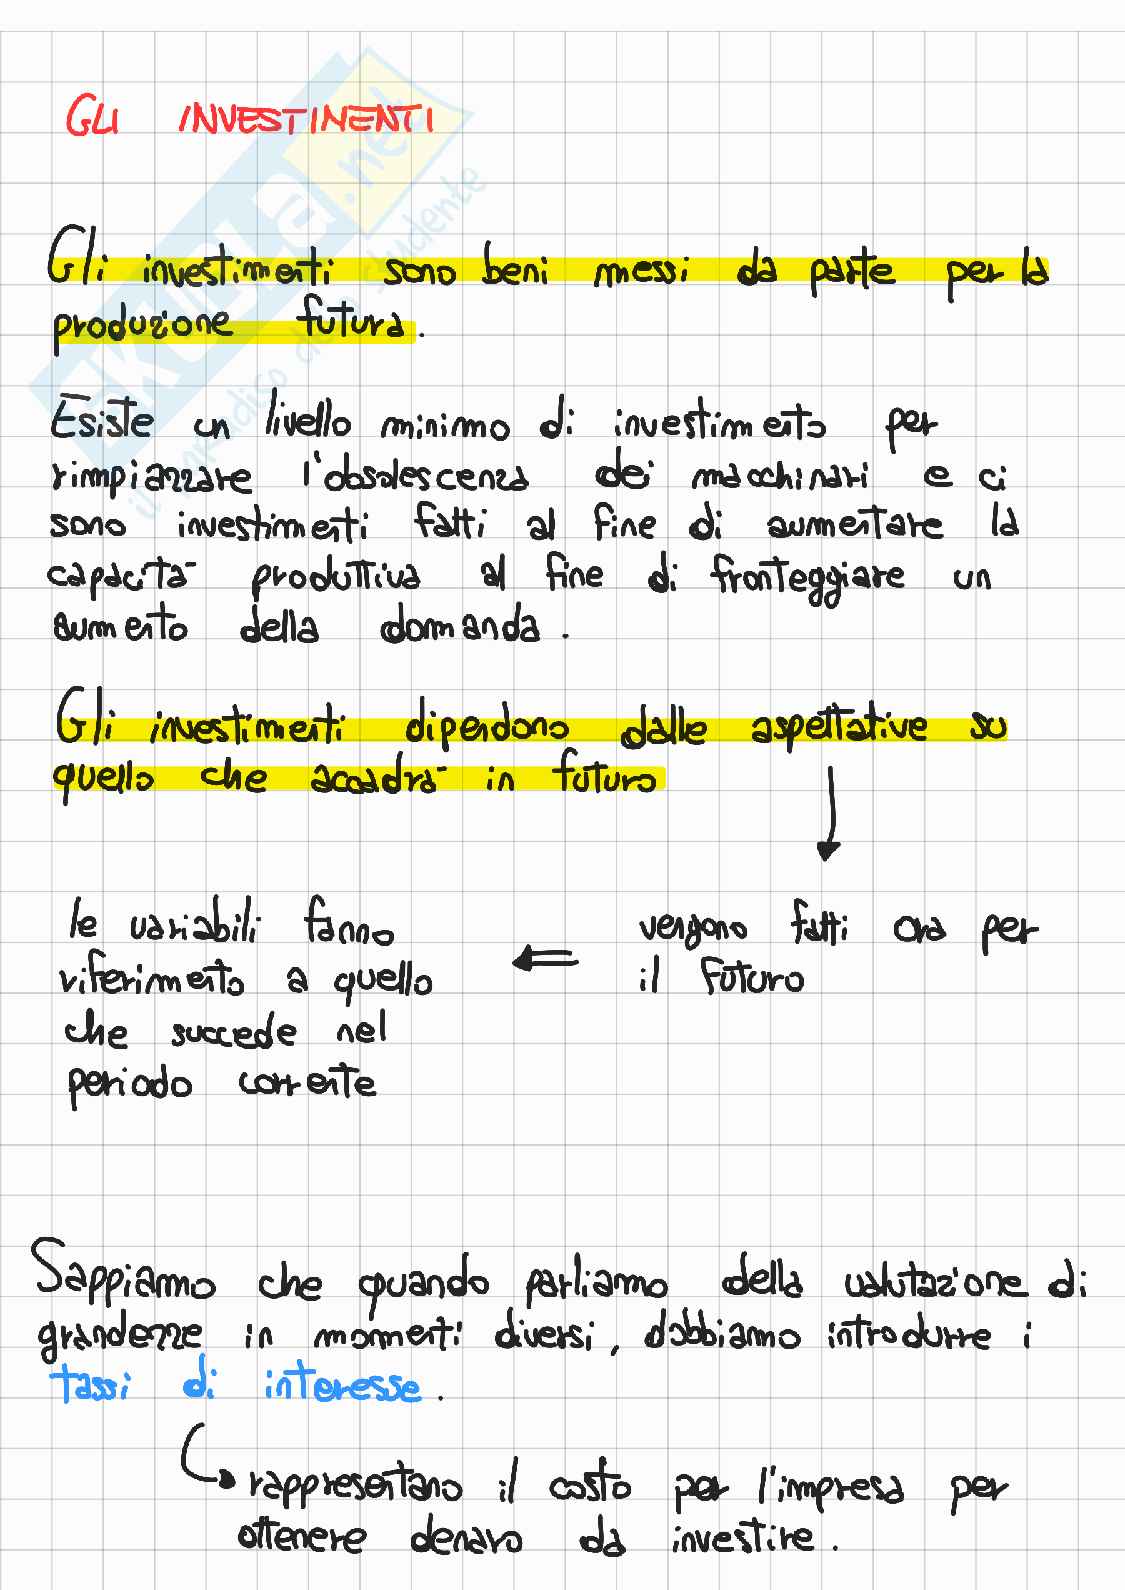 GLI INVESTIMENTI
Gli investimenti sono beni messi da parte per la
produzione futura.
Esiste un livello minimo di investimento per
rimpiazzare l'obsolescenza dei macchinari e ci
sono investimenti fatti al fine di aumentare la
capacità produttiva al fine di fronteggiare un
aumento della domanda.
Gli investimenti dipendono dalle aspettative su
quello che accadrà in futuro
vengono fatti ora per
il futuro
le variabili fanno
riferimento a quello
che succede nel
periodo corrente
Sappiamo che quando parliamo della valutazione di
grandezze in momenti diversi, dobbiamo introdurre i
tassi di interesse.
rappresentano il costo per l'impresa per
ottenere denaro da investire.
SKUOLA.net
il paradiso dello studente